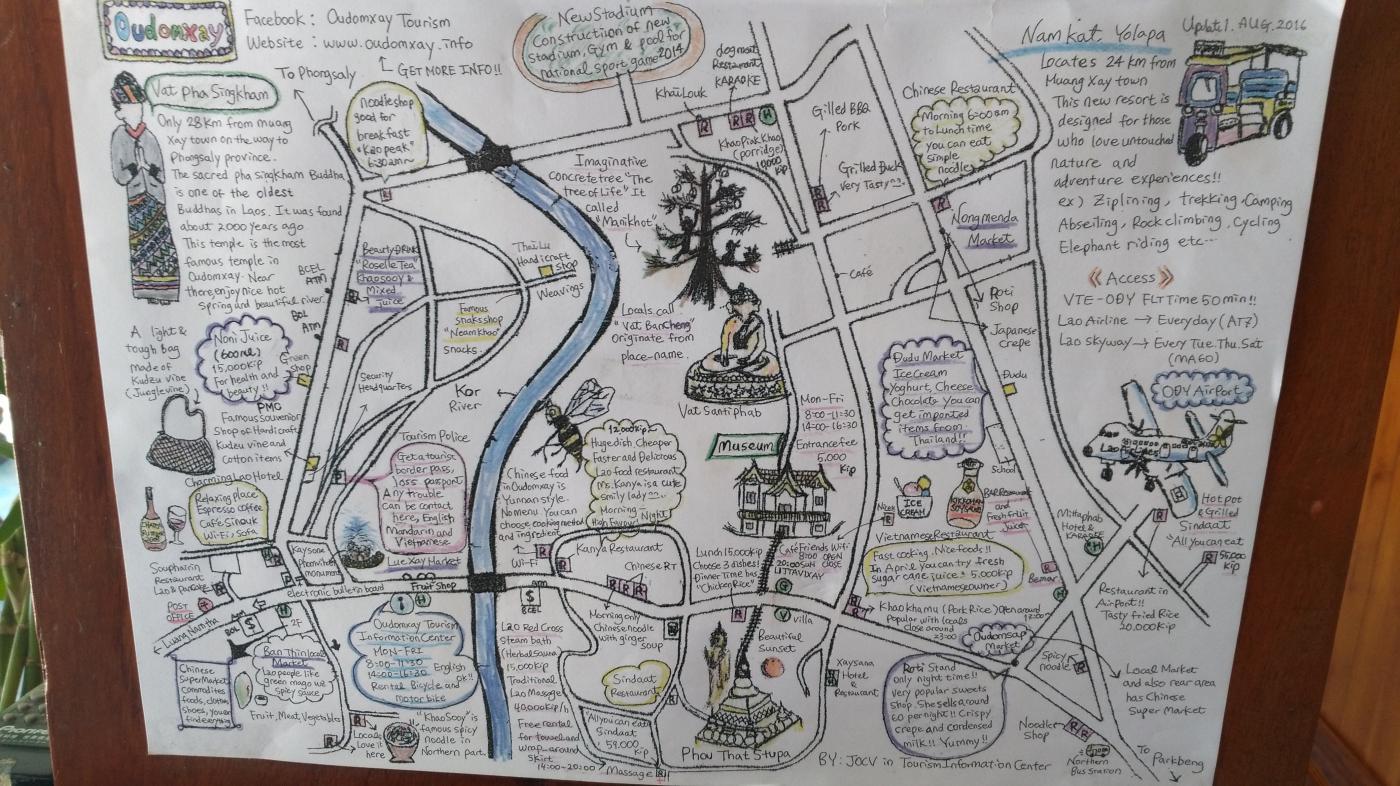 Oudomxay
Facebook : Oudomxay Tourism
Website : www.oudomxay.info
GET MORE INFO!!
To Phongsaly
New Stadium
Construction of new
stadium, Gym & pool for
national sport game 2014
dogmeat
Restaurant
KARAOKE
Khaulouk
KhaoPiak Khao
(porridge)
10000
kip
Grilled BBQ
Pork
Grilled Duck
Very Tasty
Chinese Restaurant
Morning 6:00am
to Lunch time
you can eat
simple
noodle
Nam kat Yolapa
Update1. AUG. 2016
Locates 24km from
Muang Xay town
This new resort is
designed for those
who love untouched
nature and
adventure experiences!!
ex) Ziplining, trekking, Camping
Abseiling, Rock climbing, Cycling
Elephant riding etc...
《Access》
VTE - ODY FLT Time 50min!!
Lao Airline → Everyday (AT7)
Lao skyway → Every Tue. Thu. Sat
(MA60)
ODY Airport
Vat pha Singkham
Only 28km from muag
Xay town on the way to
Phongsaly province.
The sacred pha singkham Buddha
is one of the oldest
Buddhas in Laos. It was found
about 2000 years ago
This temple is the most
famous temple in
Oudomxay. Near
there, enjoy nice hot
Spring and beautiful river.
noodle shop
good for
breakfast
"Kao peak"
6:30am~
Imaginative
concrete tree "The
tree of Life" It
called
"Manikhot"
Beauty DRINK
"Roselle Tea"
Khaosoey &
Mixed
juice
Thai Lu
Handicraft
shop
Weavings
Famous
Snaks shop
"Neam khao"
snacks.
BCEL
ATM
BOL
ATM
Nongmenda
Market
Café
Roti
Shop
Japanese
crepe
Dudu
A light &
tough bag
made of
Kudzu vine
(Junglevine)
Noni Juice
(600ml)
15,000kip
For health and
beauty!!
Green
Shop
PMC
Famous souvenior
Shop of Handicraft
Kudzu vine and
cotton items
Security
Headquarters
Kor
River
Locals call
"Vat BanCheng"
Originate from
place-name.
Vat Santiphab
Dudu Market
Ice Cream
Yoghurt, Cheese
Chocolate You can
get imported
items from
Thailand!!
Mon-Fri
8:00-11:30
14:00-16:30
Entrance fee
5,000
kip
Museum
Tourism Police
Get a tourist
border pass,
loss passport
Any trouble
Can be contact
here, English
Mandarin and
Vietnamese
Lue Xay Market
Charming Lao Hotel
Relaxing place
Espresso coffee
Cafe Sinouk
Wi-Fi, Sofa
Chinese food
in Oudomxay is
Yunnan style.
No menu. You can
choose cooking method
and ingredient
Wi-Fi
12,000kip~
Huge dish Cheaper
Faster and Delicious
Lao food restaurant
Ms. Kanya is a cute
smily lady
Morning ~ Night
High Favour
Kanya Restaurant
Chinese RT
Lunch 15,000kip
Choose 3 dishes!
Dinner Time has
"Chicken Rice"
Café Friends Wifi
8:00 OPEN
20:00 CLOSE
LITTAVIXAY
ICE
CREAM
School
Vietnamese Restaurant
Fast cooking. Nice foods!!
In April, you can try fresh
sugar cane juice! 5,000kip
(Vietnamese owner)
Mittaphab
Hotel &
KARAOKE
Hot pot
& Grilled
Sindaat
"All you can eat"
55,000
kip
Restaurant in
AirPort!!
Tasty fried Rice
20,000kip
Souphailin
Restaurant
Lao & pancake
POST
OFFICE
Kaysone
Phomvihane
monument
electronic bulletin board
Fruit Shop
BCEL
Luang Namtha
BOL
2F
Ban Thin local
Market
Lao people like
green mago w/
Spicy sauce
Chinese
Supermarket
Commodities
foods, clothes
shoes, you can
find everything
Fruit, Meat, Vegetables
Oudomxay Tourism
Information Center
MON-FRI
8:00-11:30
14:00-16:30
English
OK!!
Rental Bicycle and
motor bike
Locals
Love it
here
"Khao Sooy" is
famous spicy
noodle in
Northern part.
LaO Red Cross
Steam bath
(Herbal Sauna)
15,000kip
Traditional
Lao Massage
40,000kip/h
Free rental
for towel and
wrap-around
skirt
14:00~20:00
Massage
Morning only
Chinese noodle
with ginger
soup
Sindaat
Restaurant
All you can eat
Sindaat
59,000
kip
villa
Beautiful
Sunset
Phou That Stupa
Khao khamu (Pork Rice)
Popular with locals
Open around
12:00
Close around
23:00
Xaysana
Hotel
&
Restaurant
Roti Stand
Only night time!!
Very popular sweets
Shop. She sells around
60 per night!! Crispy
crepe and condensed
milk!! Yummy!!
Oudomsap
Market
Spicy
noodle
Local Market
and also rear area
has Chinese
Super Market
Noodle
Shop
Northern
Bus Station
To
Parkbeng
BY: JOCV in Tourism Information Center